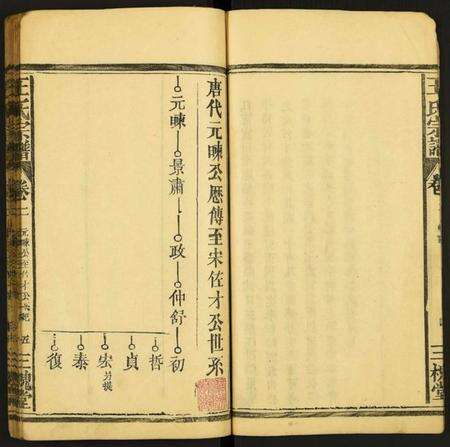 王氏宗譜
唐代元暕公歷傳至宋佐才公世系
元暕 景肅 政 仲舒 初
哲
貞
宏 另提
泰
復
王氏宗譜 卷一
三槐堂